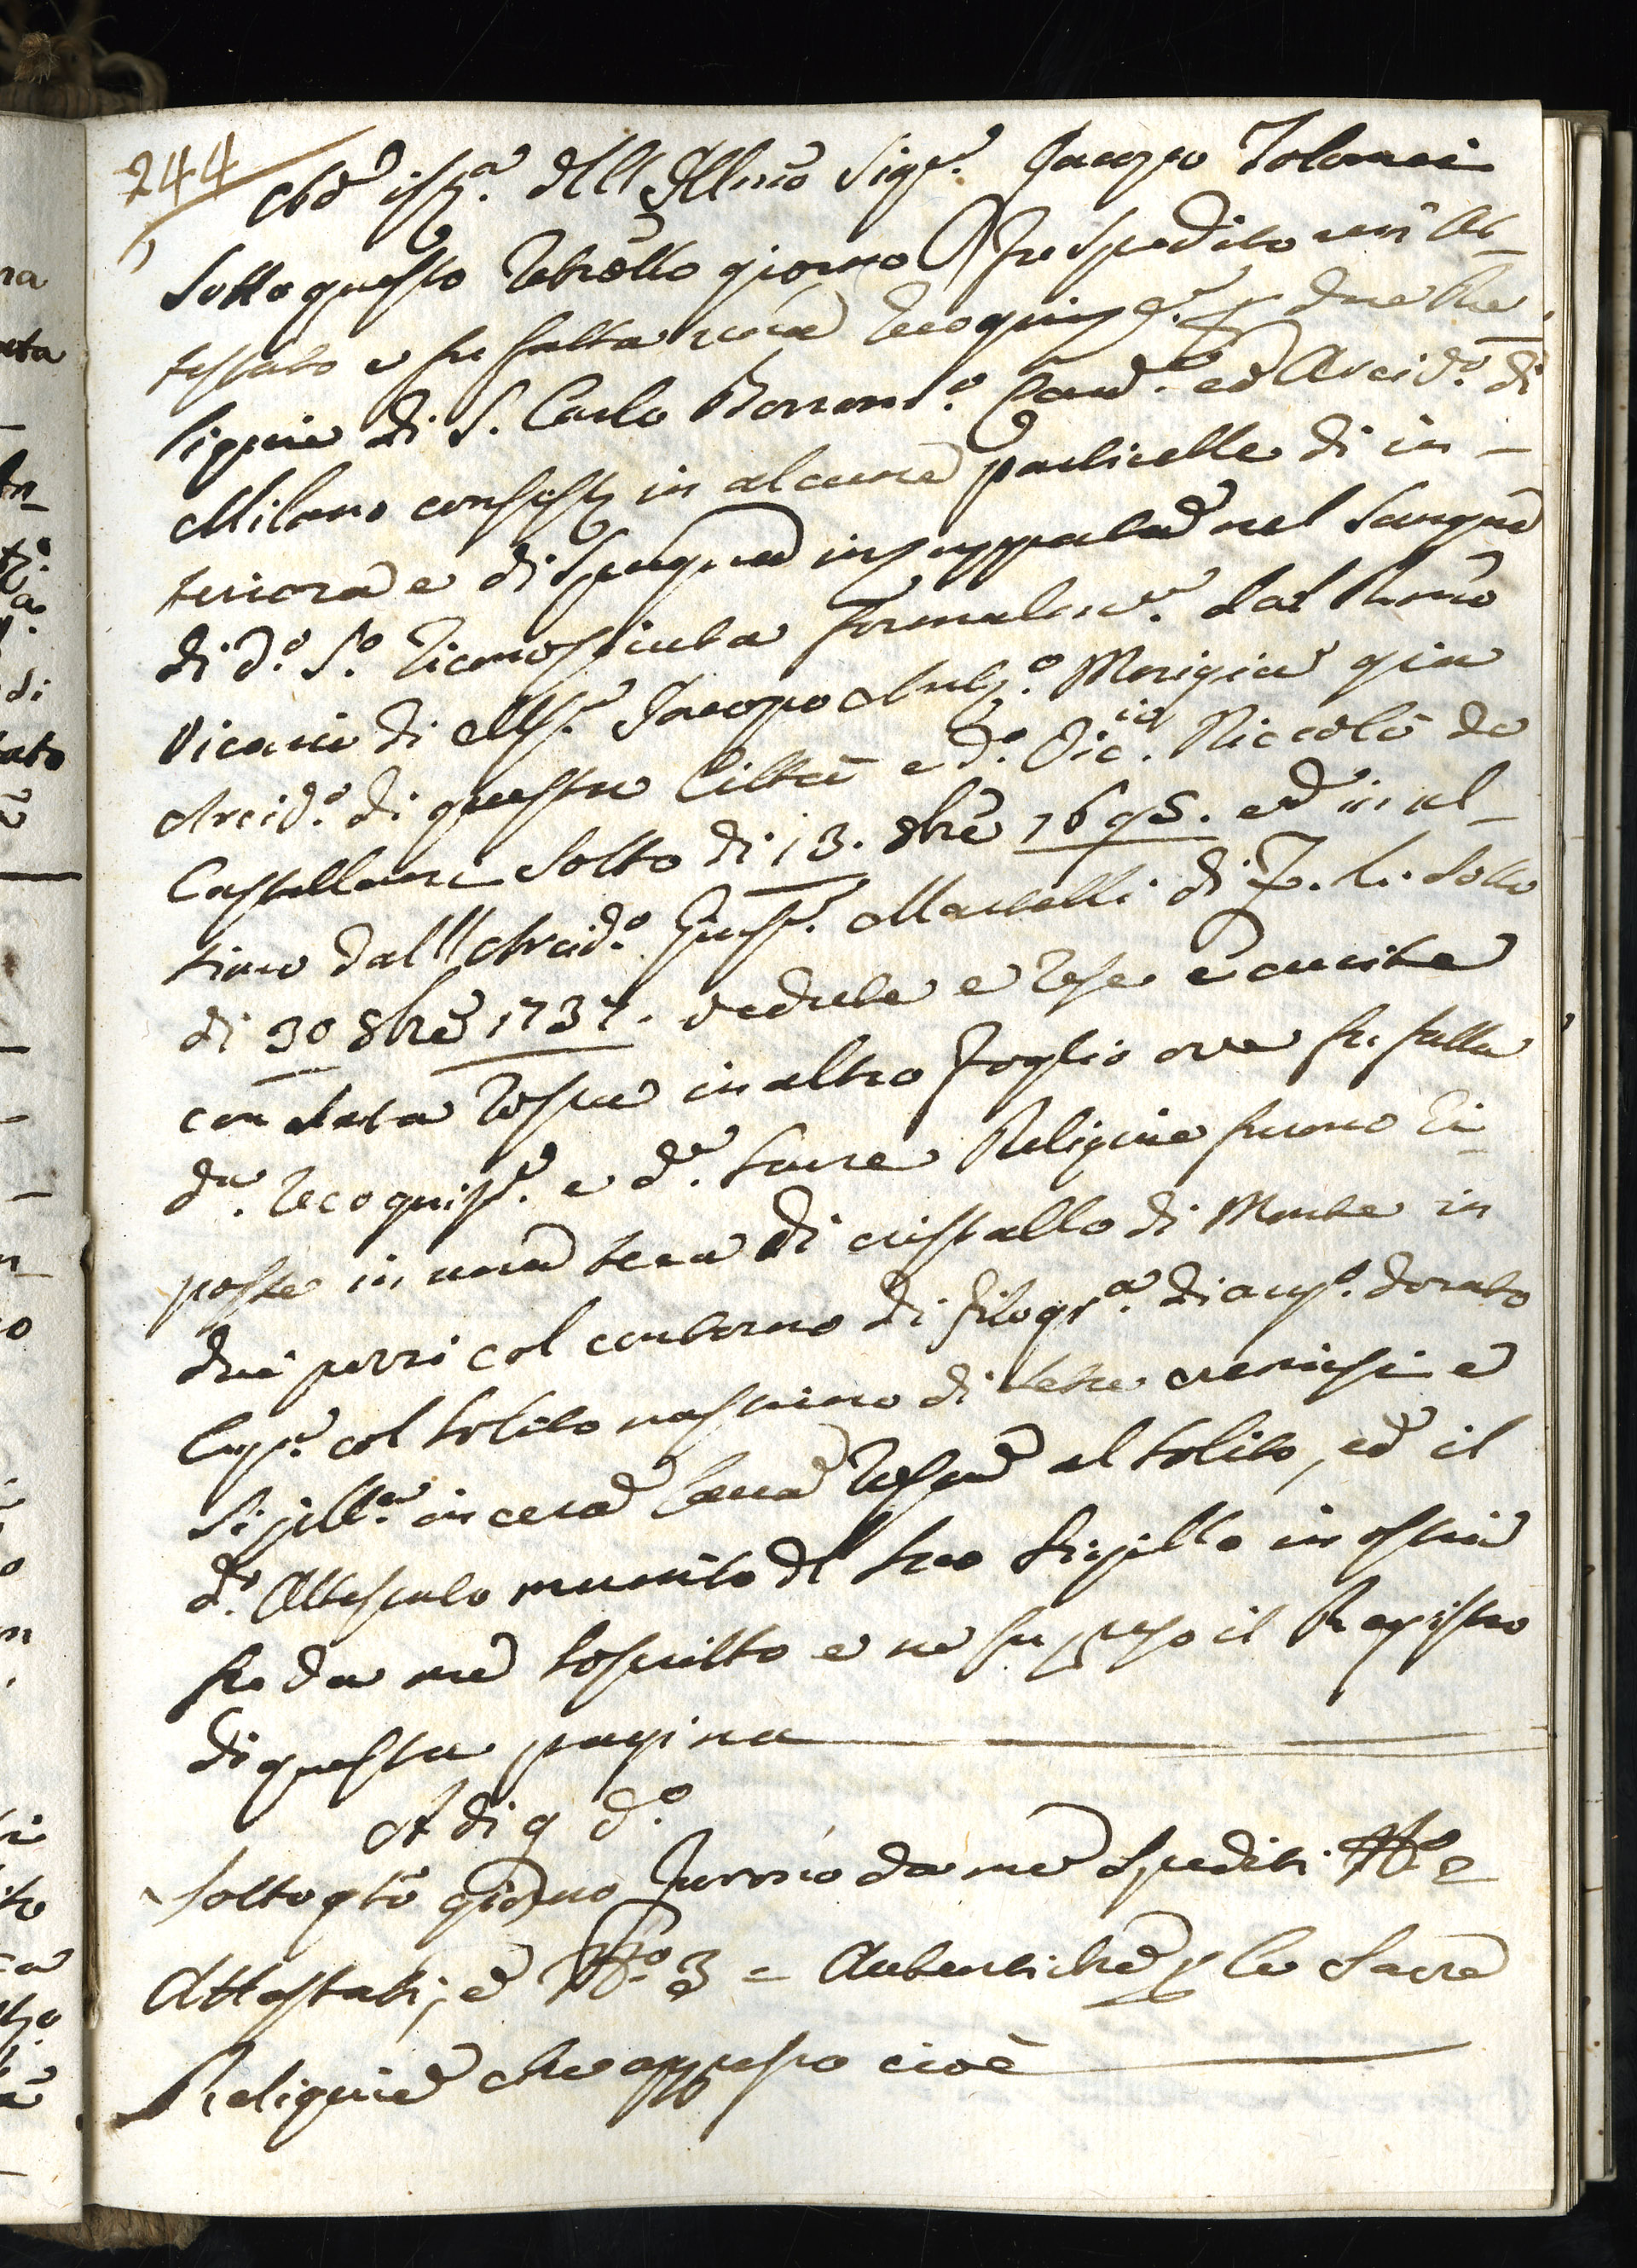 244
Ad ist.ª dell Illmo Sig.r Jacopo Tolomei
Sotto questo retrò͠tto giorno fu spedito un At-
testato e fu fatta una recogniz.e p due Re
liquie di S. Carlo Borrom.o Card.e ed Arcid.o di
Milano consist. in alcune particelle di in-
teriora e di Spugna inzuppata nel Sangue
di d.o S.o riconosciuta formalm.e dal Rmo
Vicario di Ms.r Jacopo Ant.o Morigia gia
Arcid.o di questa Città e d.o Vic.io Niccolò da
Castellani Sotto di 13. 8bre 1695. ed in ul-
timo dall Arcid.o Gius.e Martelli di F. M. Sotto
di 30 8bre 1737. vedute e rese e cucite
con seta rossa in altro foglio ove fu fatta
d.a recogniz.e e d.e Sacre Reliquie furono ri-
poste in una teca di cristallo di Monte in
due pezzi col contorno di filogr.ª di arg.o dorato
leg.e col solito nastrino di seta cremisi e
Sigill.e in cera lacca rossa al solito, ed il
d.o Attestato munito del suo Sigillo in ostia
fu da me soscritto e ne fu preso il Registro
di questa pagina
A di 9 d.o
Sotto q͠to giorno furono da me spediti No 2
Attestati, e No. 3 = Autentiche p le Sacre
Reliquie che appresso cioè